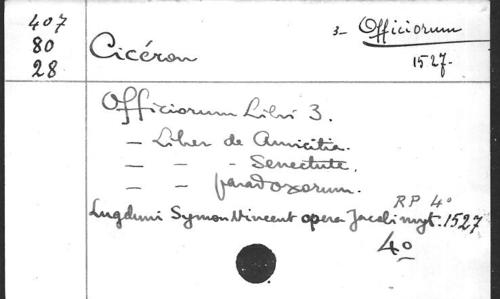 407
80
28
Cicéron
3- Officiorum
1527-
Officiorum Libri 3.
- Liber de Amicitia.
- - - Senectute.
- - paradoxorum.
RP 4°
Lugduni Symon Vincent opera Jacobi myt. 1527
4°